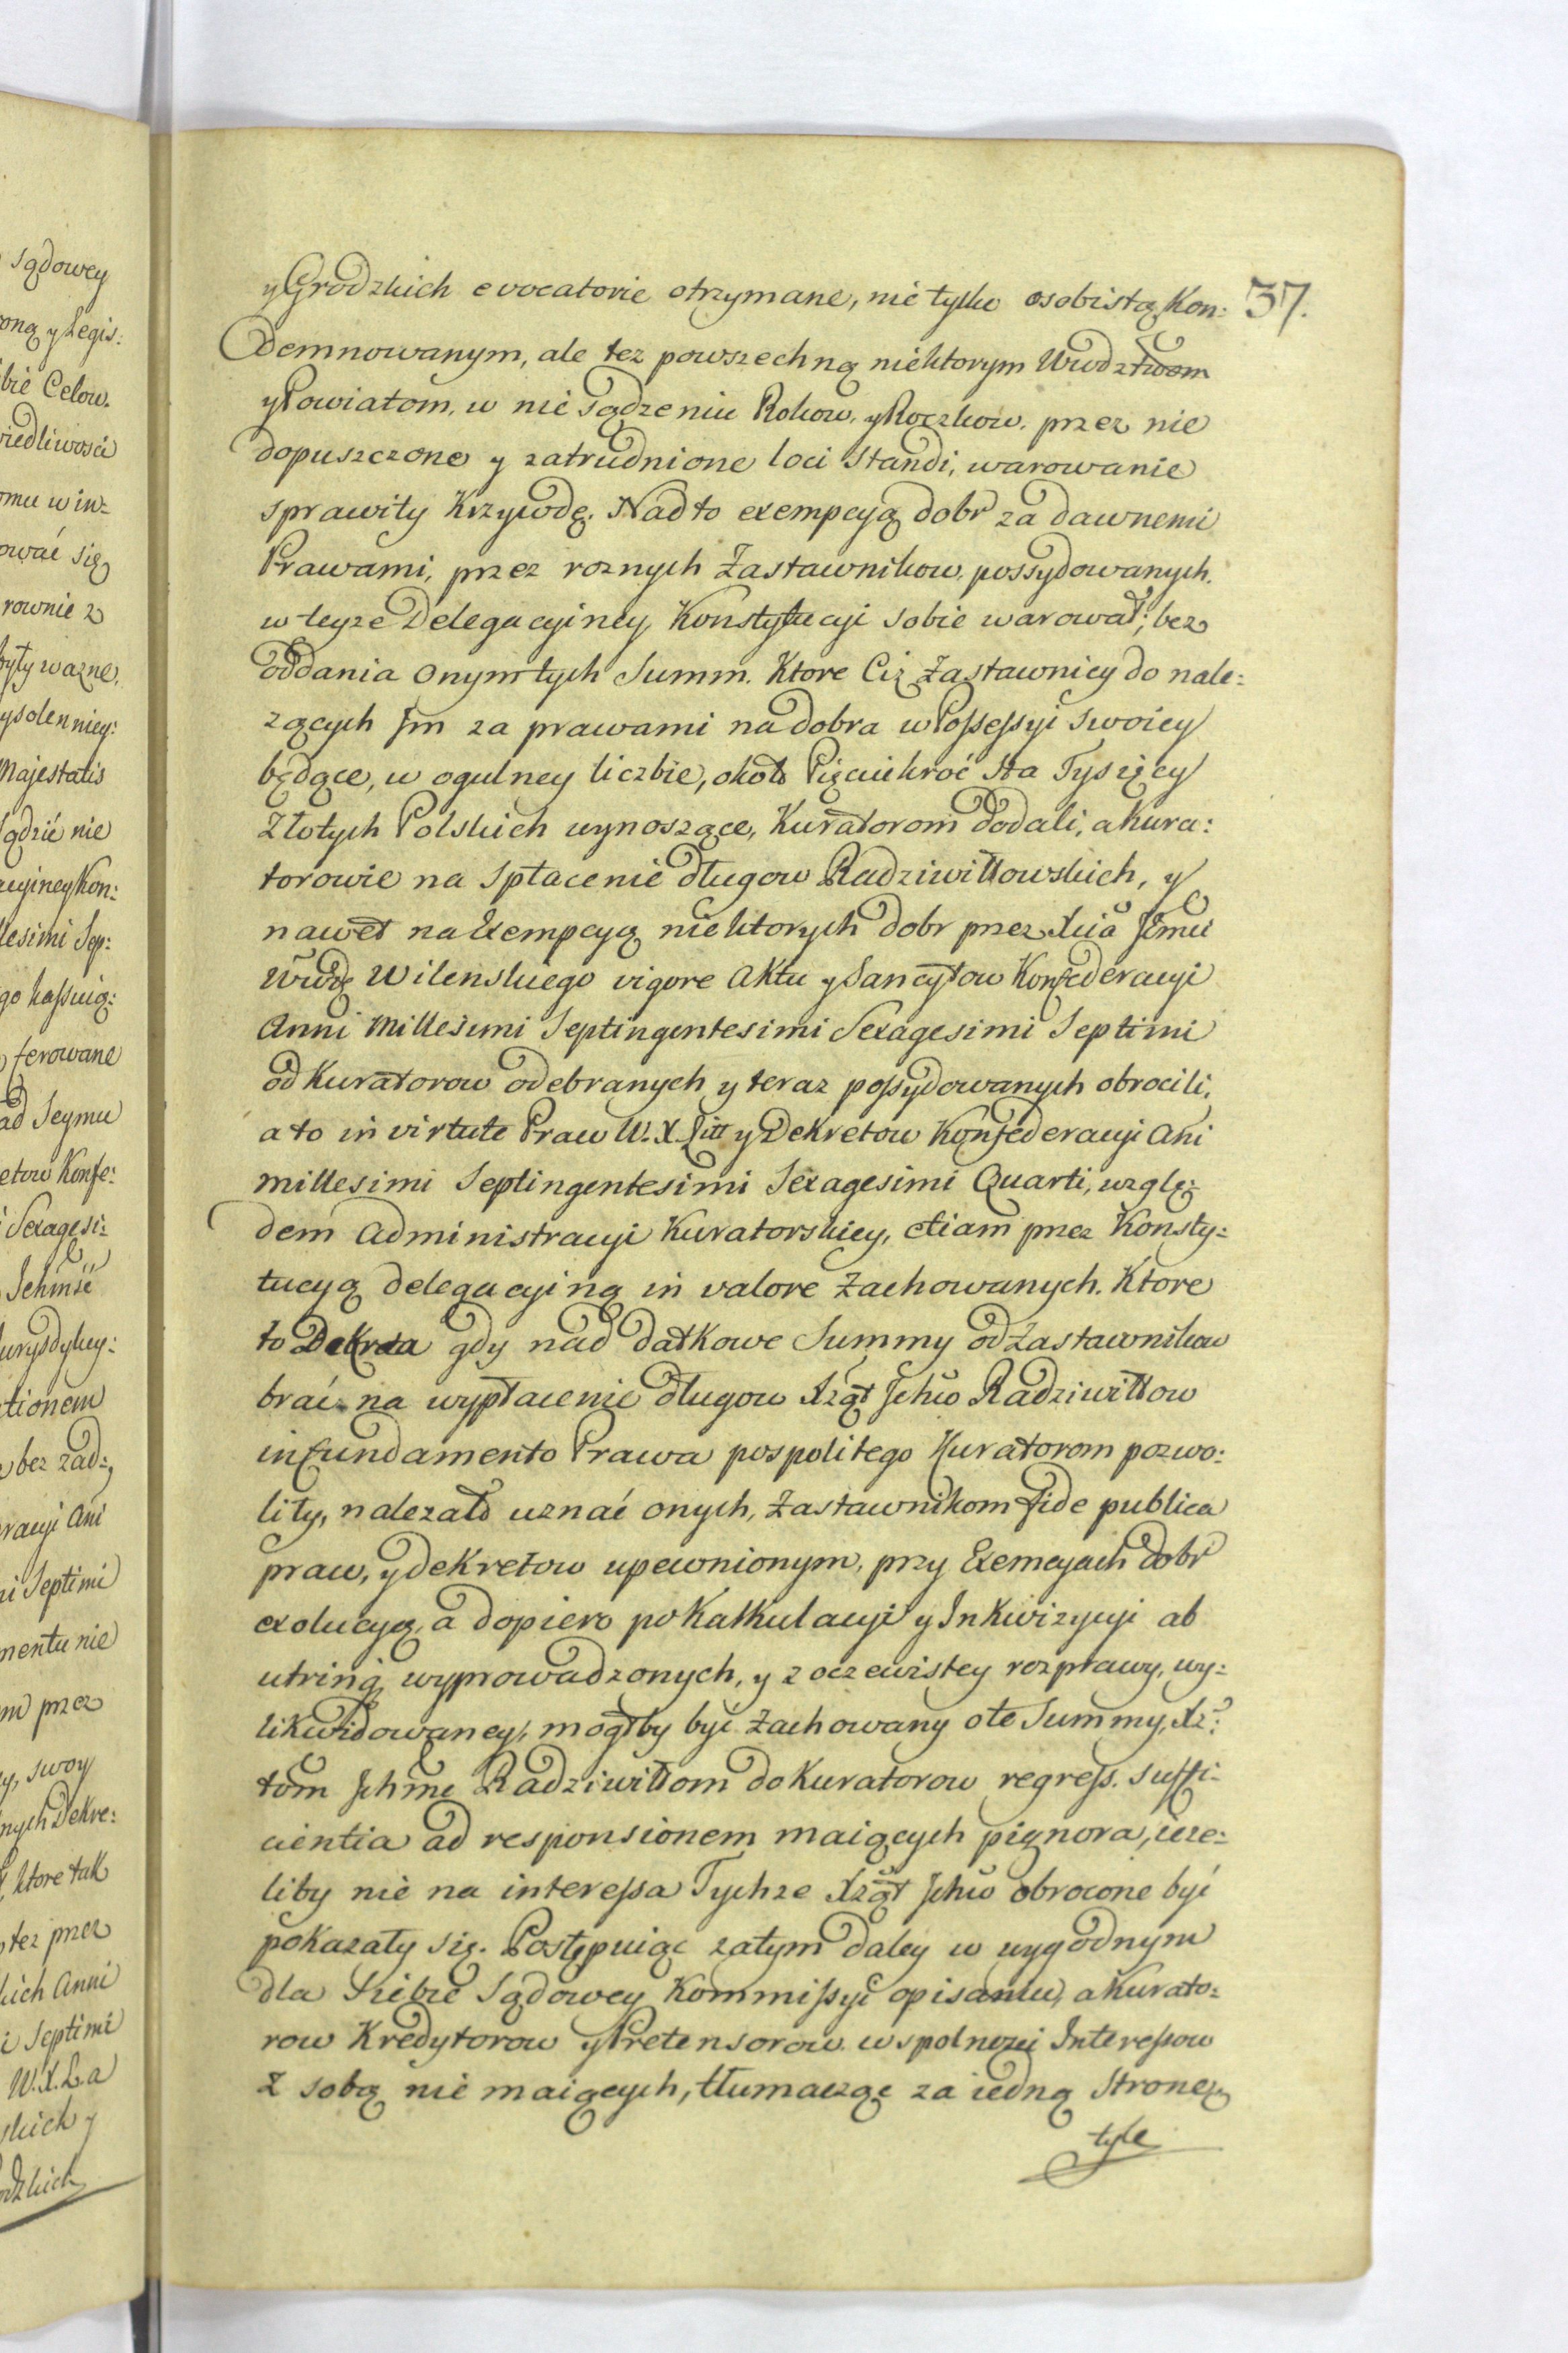 sądowey
oną y Legis:
bie Celow.
iedliwosci
omu w in=
ować się
rownie z
były wazne.
ysolenniey:
Majestatis
sądzić nie
acyiney Kon:
lesimi Sep:
go kassuią:
ferowane
ad Seymu
etow Konfe:
Sexagesi:
Jurysdykcy:
tionem
bez zad:
racyi Ani
ni Septimi
mentu nie
m przez
y, swoy
nych Dekre:
ktore tak
tez przez
kich Anni
i Septimi
W. X. L. a
skich y
odzkich
37.
y Grodzkich evocatorie otrzymane, nie tylko osobistą Kon:
demnowanym, ale tez powszechną niektorym Wwdztwom
y Powiatom, w nie sądzeniu Rokow, y Roczkow, przez nie
dopuszczone y zatrudnione loci standi, warowanie
sprawiły Krzywdę. Nad to exempcyą dobr za dawnemi
Prawami, przez roznych Zastawnikow, possydowanych,
w teyze Delegacyiney Konstytucyi sobie warował; bez
oddania onym tych Summ. Ktore Ciz Zastawnicy do nale:
zących Im za prawami na dobra w Possessyi swoiey
będące, w ogulney liczbie, około Pięciukroć sta Tysięcy
Złotych Polskich wynoszące, Kuratorom dodali, a Kura:
torowie na spłacenie długow Radziwiłłowskich, y
nawet na Exempcyą niektorych dobr przez Xcia Jmci
Wwdę Wilenskiego vigore Aktu y Sancytow Konfederacyi
Anni Millesimi Septingentesimi Sexagesimi Septimi
od Kuratorow odebranych y teraz possydowanych obrocili,
a to in virtute Praw W. X. Litt y Dekretow Konfederacyi Ani
Millesimi Septingentesimi Sexagesimi Quarti, wzglę:
dem Administracyi Kuratorskiey, etiam przez Konsty:
tucyą delegacyiną in valore zachowanych. Ktore
to Dekreta gdy nad datkowe Summy od Zastawnikow
brać na wypłacenie długow Xżąt Jchw Radziwiłłow
in fundamento Prawa pospolitego Kuratorom pozwo:
liły, nalezało uznać onych, Zastawnikom fide publica
praw, y dekretow upewnionym, przy Exemcyach dobr
exolucyą, a dopiero po Kalkulacyi y Inkwizycyi ab
utrinq wyprowadzonych, y z oczewistey rozprawy, wy:
likwidowaney, mogłby być zachowany o te Summy, Xz:
tom Jchmc Radziwiłłom do Kuratorow regress. suffi:
cientia ad responsionem maiących pignora, ieze:
liby nie na interessa Tychze Xżąt Jchw obrocone być
pokazały się. Postępuiąc zatym daley w wygodnym
dla siebie Sądowey Kommissyi opisaniu, a Kurato:
row Kredytorow y Pretensorow. wspolnezei Interessow
z sobą nie maiących, tłumacząc za iedną Stronę,
tyle